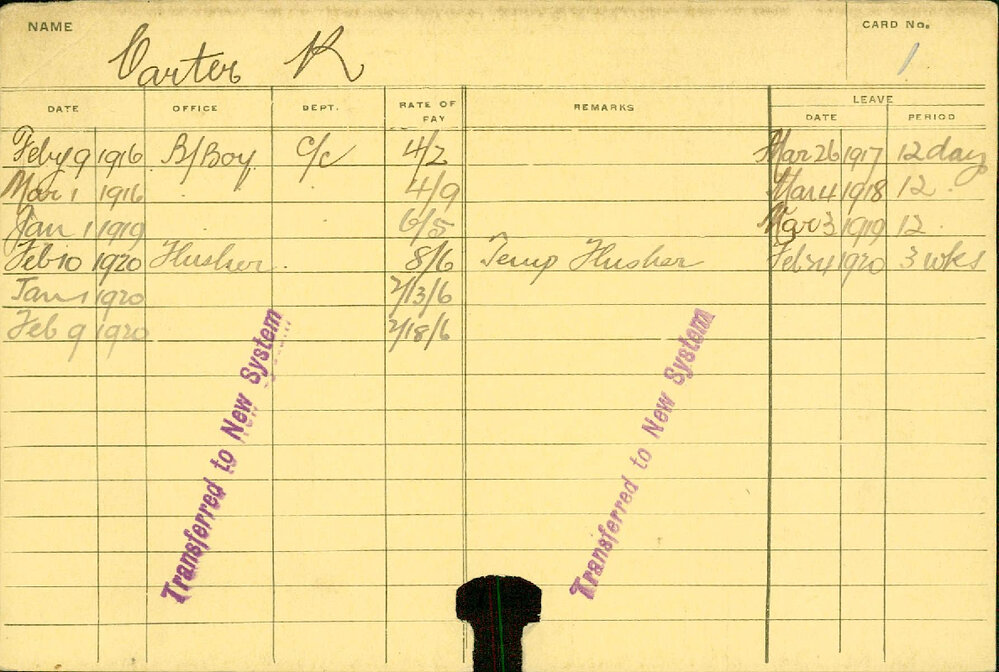 NAME Carter R CARD No. 1
DATE OFFICE DEPT. RATE OF PAY REMARKS LEAVE
DATE PERIOD
Feby 9 1916 B/Boy C/c 4/2 Mar 26 1917 12 day
Mar 1 1916 4/9 Mar 4 1918 12
Jan 1 1919 6/5 Mar 3 1919 12
Feb 10 1920 Husker 8/6 Temp Husker Feb 24 1920 3 wks
Jan 1 1920 /13/6
Feb 9 1920 /18/6
Transferred to New System
Transferred to New System